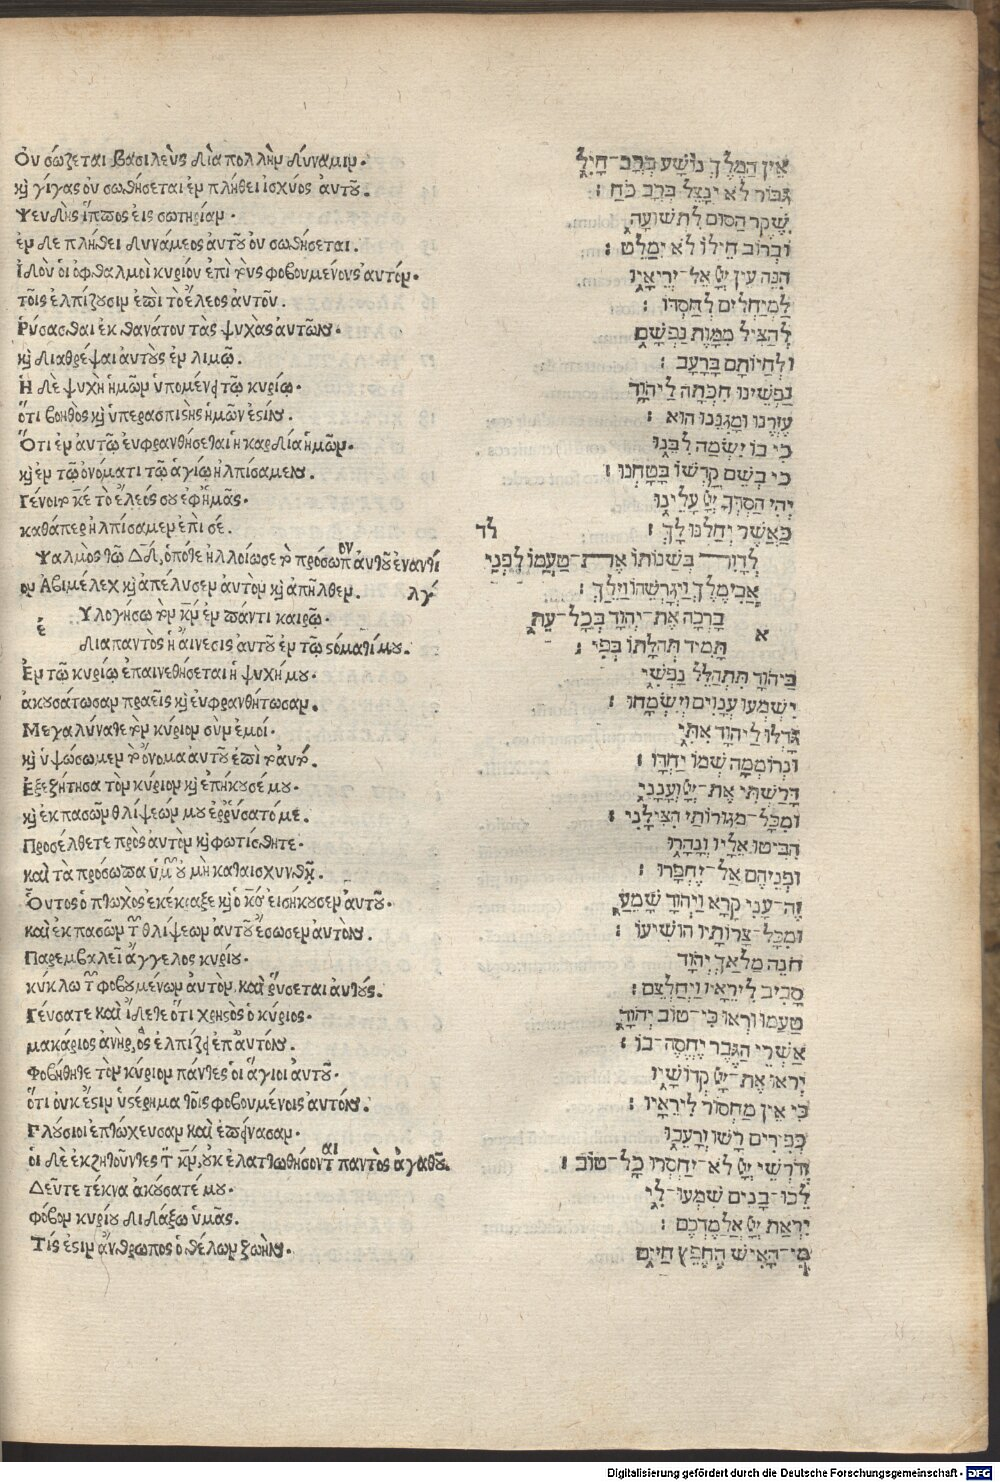 Οὐ σώζεται βασιλεὺς διὰ πολλὴν δύναμιν.
κỳ γίγας οὐ σωθήσεται ἐν πλήθει ἰσχύος ἀυτοῦ.
Ψευδὴς ἵππος εἰς σωτηρίαν.
ἐν δὲ πλήθει δυνάμεος ἀυτοῦ οὐ σωθήσεται.
Ἰδοὺ ὁι ὀφθαλμοὶ κυρίου ἐπὶ τοὺς φοβουμένους ἀυτόν.
τοῖς ἐλπίζουσιν ἐπὶ τὸ ἔλεος ἀυτοῦ.
Ῥύσασθαι ἐκ θανάτου τὰς ψυχὰς ἀυτῶν.
κỳ διαθρέψαι ἀυτοὺς ἐν λιμῷ.
Ἡ δὲ ψυχὴ ἡμῶν ὑπομένει τῷ κυρίῳ.
ὅτι βοηθὸς κỳ ὑπερασπιστὴς ἡμῶν ἐστιν.
Ὅτι ἐν ἀυτῷ ἐυφρανθήσεται ἡ καρδία ἡμῶν.
κỳ ἐν τῷ ὀνόματι τῷ ἁγίῳ ἠλπίσαμεν.
Γένοιτο κ̅ε τὸ ἔλεός σου ἐφ᾽ἡμᾶς.
καθάπερ ἠλπίσαμεν ἐπὶ σέ.
Ψαλμος τῷ Δα̅δ, ὁπότε ἠλλοίωσε τὸ πρόσωπον ἀυτοῦ ἐναντί
ον Ἀβιμέλεχ κỳ ἀπέλυσεν ἀυτὸν κỳ ἀπῆλθεν. λγ́
ἐ Υλογήσω τὸν κ̅ν ἐν παντὶ καιρῷ.
διαπαντὸς ἡ ἄινεσις ἀυτοῦ ἐν τῷ στόματί μου.
Ἐν τῷ κυρίῳ ἐπαινεθήσεται ἡ ψυχή μου.
ἀκουσάτωσαν πραεῖς κỳ ἐυφρανθήτωσαν.
Μεγαλύνατε τὸν κύριον σὺν ἐμοί.
κỳ ὑψώσωμεν τὸ ὄνομα ἀυτοῦ ἐπὶ τὸ ἀυτό.
Ἐξεζήτησα τὸν κύριον κỳ ἐπήκουσέ μου.
κỳ ἐκ πασῶν θλίψεών μου ἐῤῥύσατό με.
Προσέλθετε πρὸς ἀυτὸν κỳ φωτίσθητε.
καὶ τὰ πρόσωπα ὑμῶν ὀυ μὴ καταισχυνθῇ.
Ὅυτος ὁ πτωχὸς ἐκέκραξε κỳ ὁ κ̅ς ἐισήκουσεν ἀυτοῦ.
καὶ ἐκ πασῶν τῶν θλίψεων ἀυτοῦ ἔσωσεν ἀυτόν.
Παρεμβαλεῖ ἄγγελος κυρίου.
κύκλω τῶν φοβουμένων ἀυτὸν, καὶ ῥύσεται ἀυτούς.
Γέυσατε καὶ ἴδετε ὅτι χρηστὸς ὁ κύριος.
μακάριος ἀνὴρ, ὃς ἐλπίζει ἐπ᾽ἀυτόν.
Φοβήθητε τὸν κύριον πάντες ὁι ἅγιοι ἀυτοῦ.
ὅτι ὀυκ ἔστιν ὑστέρημα τοῖς φοβουμένοις ἀυτόν.
Πλούσιοι ἐπτώχευσαν καὶ ἐπείνασαν.
ὁι δὲ ἐκζητοῦντες τὸν κ̅ν, ὀυκ ἐλαττωθήσονται παντὸς ἀγαθοῦ.
Δεῦτε τέκνα ἀκούσατέ μου.
φόβον κυρίου διδάξω ὑμᾶς.
Τίς ἐστιν ἄνθρωπος ὁ θέλων ζωήν.
אֵין הַמֶּלֶךְ נוֹשָׁע בְּרָב־חָיִל
גִּבּוֹר לֹא יִנָּצֵל בְּרָב כֹּחַ׃
שֶׁקֶר הַסּוּס לִתְשׁוּעָה
וּבְרוֹב חֵילוֹ לֹא יְמַלֵּט׃
הִנֵּה עֵין יְיָ אֶל־יְרֵיאָיו
לַמְיַחֲלִים לְחַסְדּוֹ׃
לְהַצִּיל מִמָּוֶת נַפְשָׁם
וּלְחַיּוֹתָם בָּרָעָב׃
נַפְשֵׁינוּ חִכְּתָה לַיהוָֹה
עֶזְרֵנוּ וּמָגִנֵּנוּ הוּא׃
כִּי בוֹ יִשְׂמַה לִבֵּנוּ
כִּי בְשֵׁם קָדְשׁוֹ בָּטָחְנוּ׃
יְהִי חַסְדְּךָ יְיָ עָלֵינוּ
כַּאֲשֶׁר יִחַלְנוּ לָךְ׃ לד
לְדָוִד בְּשַׁנּוֹתוֹ אֶת־טַעֲמוֹ לִפְנֵי
אֲבִימֶלֶךְ וַיְגָרְשֵׁהוּ וַיֵּלַךְ׃
א בָרְכָה אֶת־יְהוָֹה בְּכָל־עֵת
תָּמִיד תְּהִלָּתוֹ בְּפִי׃
בַּיהוָֹה תִּתְהַלֵּל נַפְשִׁי
יִשְׁמְעוּ עֲנָוִים וְיִשְׂמָחוּ׃
גַּדְּלוּ לַיהוָֹה אִתִּי
וּנְרוֹמְמָה שְׁמוֹ יַחְדָּו׃
דָּרַשְׁתִּי אֶת־יְיָ וְעָנָנִי
וּמִכָּל־מְגוּרוֹתַי הִצִּילָנִי׃
הִבִּיטוּ אֵלָיו וְנָהָרוּ
וּפְנֵיהֶם אַל־יֶחְפָּרוּ׃
זֶה־עָנִי קָרָא וַיהוָֹה שָׁמֵעַ
וּמִכָּל־צָרוֹתָיו הוֹשִׁיעוֹ׃
חֹנֶה מַלְאַךְ יְהוָֹה
סָבִיב לִירֵאָיו וַיְחַלְּצֵם׃
טַעֲמוּ וּרְאוּ כִּי־טוֹב יְהוָֹה
אַשְׁרֵי הַגֶּבֶר יֶחֱסֶה־בּוֹ׃
יְראוּ אֶת־יְיָ קְדוֹשָׁיו
כִּי אֵין מַחְסוֹר לִירֵאָיו׃
כְּפִירִים רָשׁוּ וְרָעֵבוּ
וְדֹרְשֵׁי יְיָ לֹא־יַחְסְרוּ כָל־טוֹב׃
לְכוּ־בָנִים שִׁמְעוּ־לִי
יִרְאַת יְיָ אֲלַמֶּדְכֶם׃
מִי־הָאִישׁ הֶחָפֵץ חַיִּים
Digitalisierung gefördert durch die Deutsche Forschungsgemeinschaft - DFG